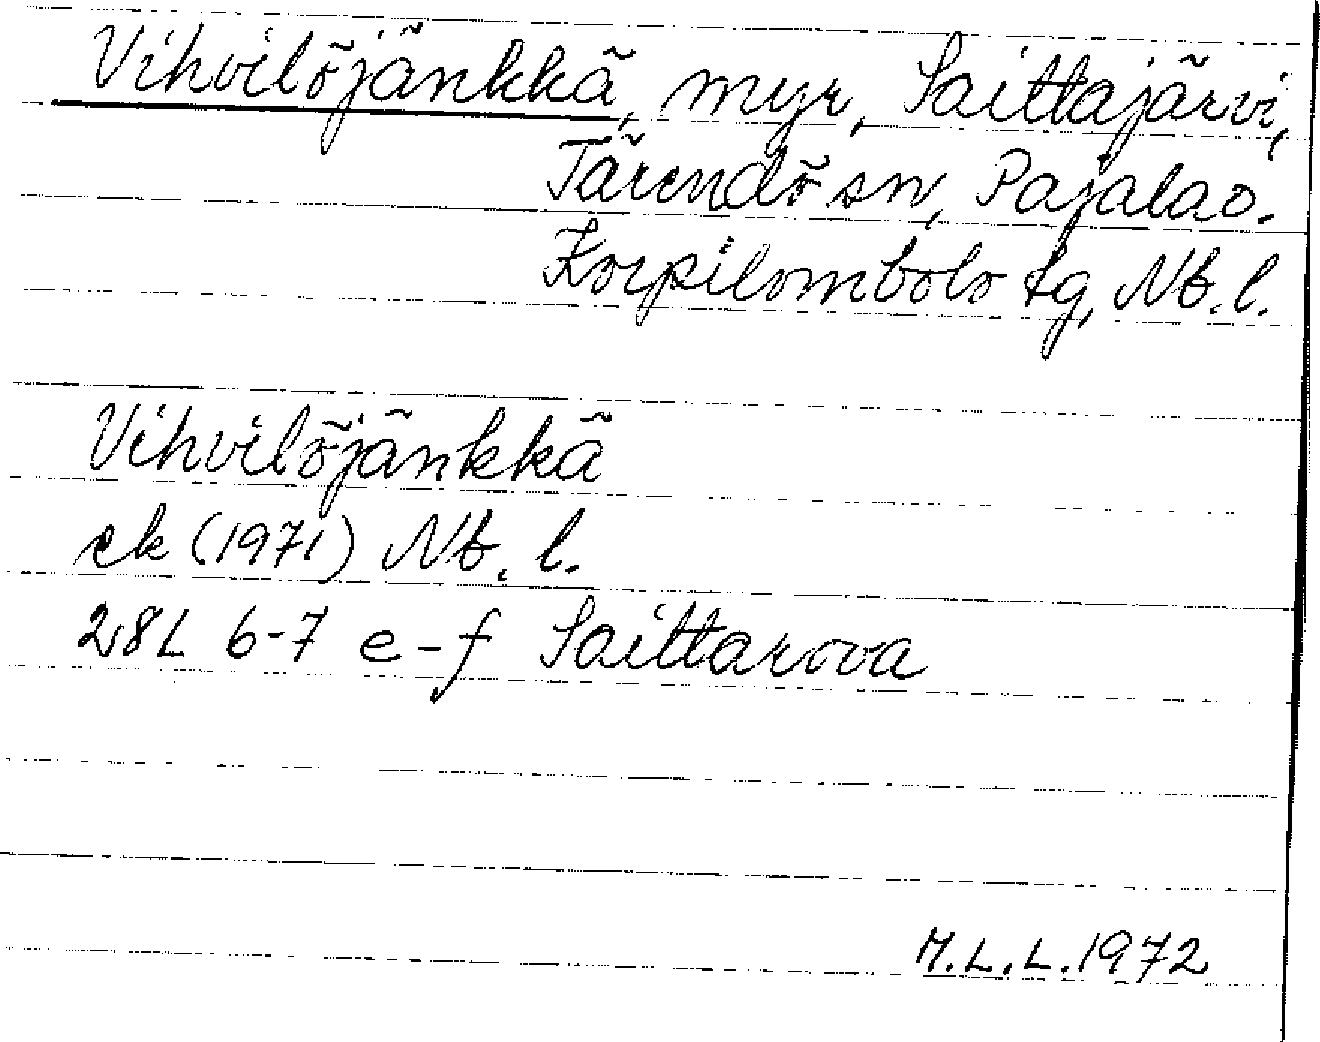 Vihvilöjänkkä, myr, Saittajärvi,
Tärendö sn, Pajala o.
Korpilombolo tg, Nb. l.
Vihvilöjänkkä
ek (1971) Nb. l.
28L 6-7 e-f Saittarova
M.L.L. 1972